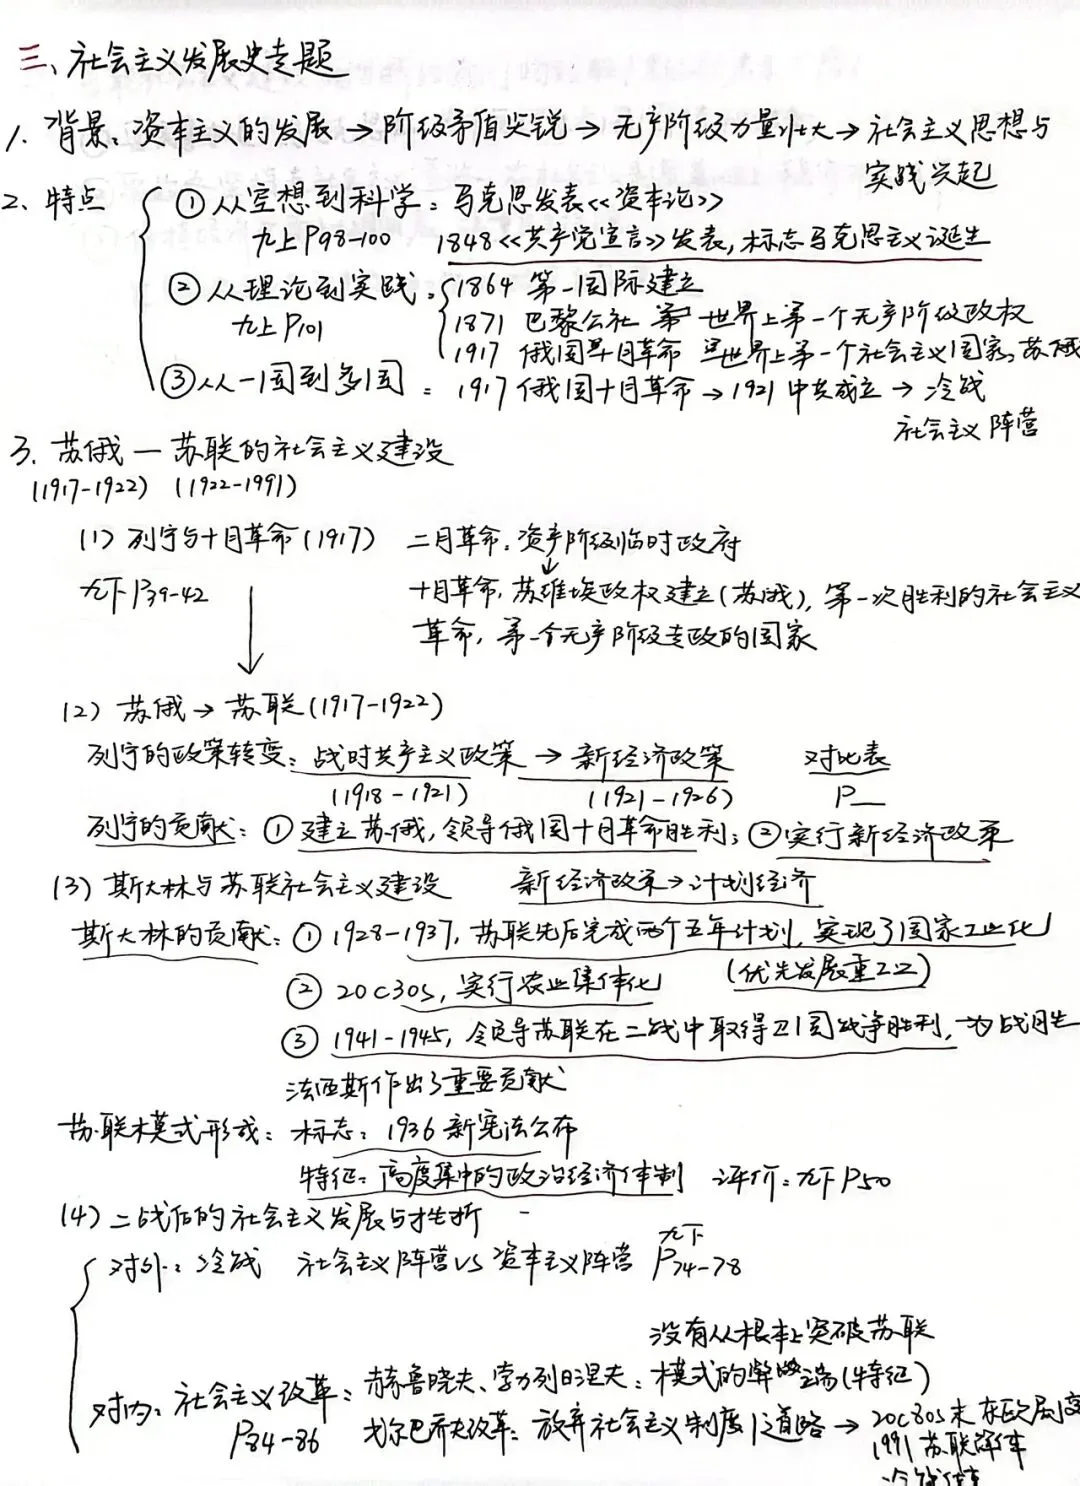 三、社会主义发展史专题
1. 背景：资本主义的发展→阶级矛盾尖锐→无产阶级力量壮大→社会主义思想与
实践兴起
2、特点
①从空想到科学：马克思发表《资本论》
九上P98-100 1848《共产党宣言》发表，标志马克思主义诞生
②从理论到实践：1864 第一国际建立
九上P101 1871 巴黎公社 第 世界上第一个无产阶级政权
1917 俄国十月革命 世界上第一个社会主义国家 苏俄
③从一国到多国：1917俄国十月革命→1921中共成立→冷战
社会主义阵营
3. 苏俄—苏联的社会主义建设
(1917-1922) (1922-1991)
(1) 列宁与十月革命(1917) 二月革命：资产阶级临时政府
↓
九下P39-42 十月革命，苏维埃政权建立(苏俄)，第一次胜利的社会主义
革命，第一个无产阶级专政的国家
(2) 苏俄→苏联(1917-1922)
列宁的政策转变：战时共产主义政策→新经济政策 对比表
(1918-1921) (1921-1926) P__
列宁的贡献：①建立苏俄，领导俄国十月革命胜利；②实行新经济政策
(3) 斯大林与苏联社会主义建设 新经济政策→计划经济
斯大林的贡献：①1928-1937，苏联先后完成两个五年计划，实现了国家工业化
(优先发展重工业)
②20c30s，实行农业集体化
③1941-1945，领导苏联在二战中取得卫国战争胜利，为战胜
法西斯作出了重要贡献
苏联模式形成：标志：1936新宪法公布
特征：高度集中的政治经济体制 评价：九下P50
(4) 二战后的社会主义发展与挫折
对外：冷战 社会主义阵营VS资本主义阵营 九下P74-78
没有从根本上突破苏联
对内：社会主义改革：赫鲁晓夫、勃列日涅夫：模式的弊端(特征)
P84-86 戈尔巴乔夫改革：放弃社会主义制度 道路→20c80s末东欧剧变
1991苏联解体
冷战结束